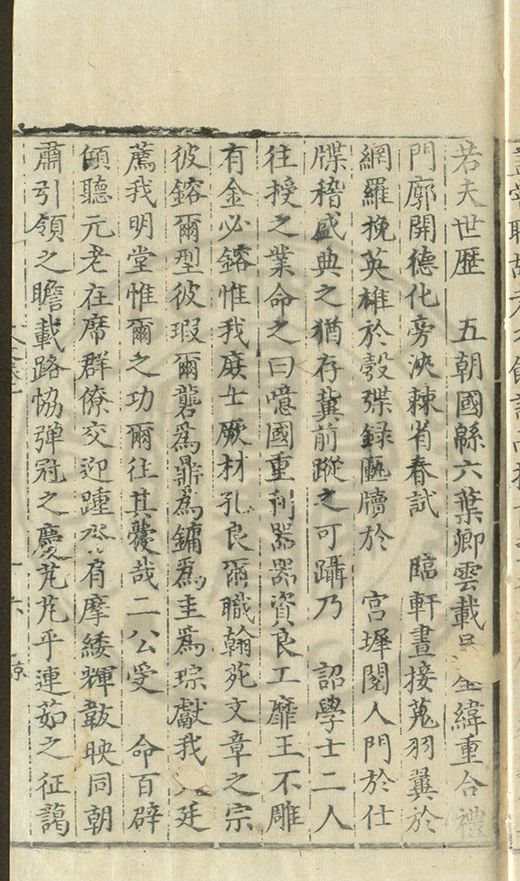 若夫世歷　五朝國緜六葉卿雲載　　緯重合禮
門廓開德化旁浹棘省春試　臨軒晝接蒐羽冀於
網羅挽英雄於彀弽錄甌牘於　宮墀閱人門於仕
牒稽盛典之猶存冀前蹤之可躡乃　詔學士二人
往授之業命之曰噫國重利器器資良工靡王不雕
有金必鎔惟我庶士厥材孔良爾職翰苑文章之宗
彼鎔爾型彼瑕爾礱爲鼎爲鏞爲圭爲琮獻我　廷
薦我明堂惟爾之功爾往其懋哉二公受　命百辟
傾聽元老在席群僚交迎踵　肩摩緌輝韍映同朝
肅引領之瞻載路恊彈冠之慶芃芃乎連茹之征藹